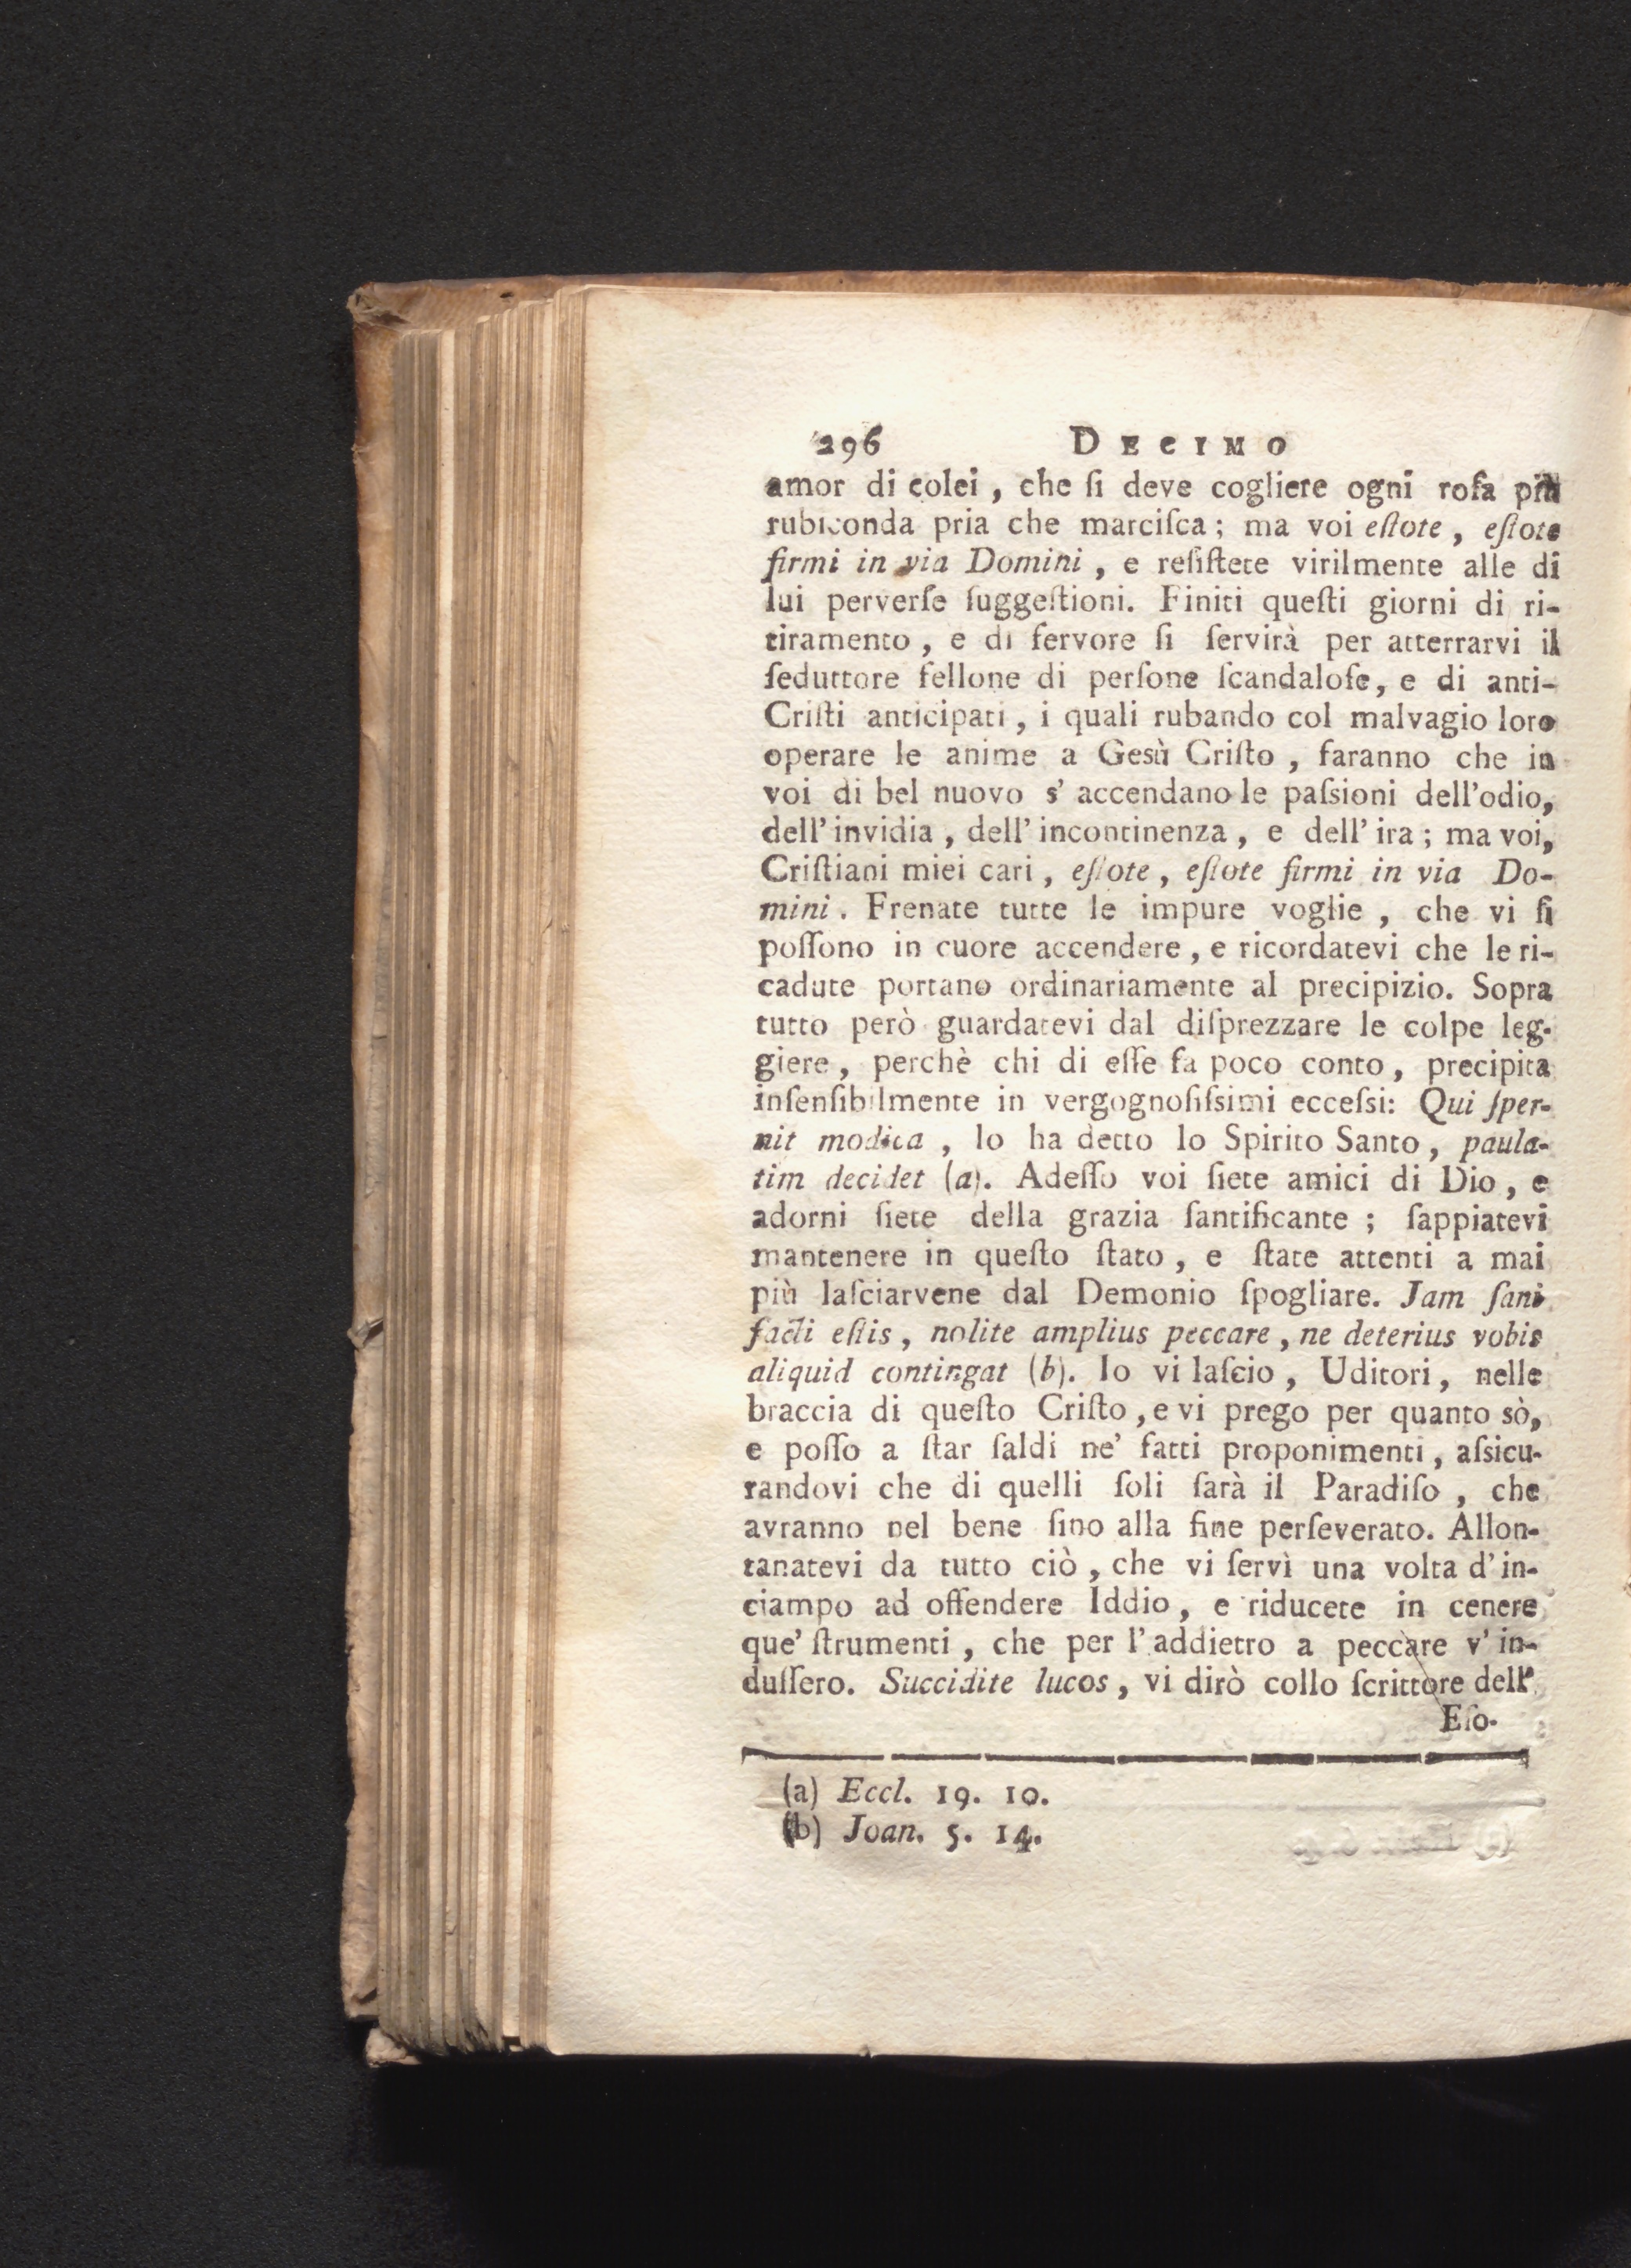 296 DECIMO
amor di colei, che ſi deve cogliere ogni roſa più
rubiconda pria che marciſca; ma voi eſtote, eſtote
firmi in via Domini, e reſiſtete virilmente alle di
lui perverſe ſuggeſtioni. Finiti queſti giorni di ri-
tiramento, e di fervore ſi ſervirà per atterrarvi il
ſeduttore fellone di perſone ſcandaloſe, e di anti-
Criſti anticipati, i quali rubando col malvagio loro
operare le anime a Gesù Criſto, faranno che in
voi di bel nuovo s' accendano le paſsioni dell'odio,
dell' invidia, dell' incontinenza, e dell' ira; ma voi,
Criſtiani miei cari, eſtote, eſtote firmi in via Do-
mini. Frenate tutte le impure voglie, che vi ſi
poſſono in cuore accendere, e ricordatevi che le ri-
cadute portano ordinariamente al precipizio. Sopra
tutto però guardatevi dal diſprezzare le colpe leg-
giere, perchè chi di eſſe fa poco conto, precipita
inſenſibilmente in vergognoſiſsimi ecceſsi: Qui ſper-
nit modica, lo ha detto lo Spirito Santo, paula-
tim decidet (a). Adeſſo voi ſiete amici di Dio, e
adorni ſiete della grazia ſantificante; ſappiatevi
mantenere in queſto ſtato, e ſtate attenti a mai
più laſciarvene dal Demonio ſpogliare. Jam ſani
facti eſtis, nolite amplius peccare, ne deterius vobis
aliquid contingat (b). Io vi laſcio, Uditori, nelle
braccia di queſto Criſto, e vi prego per quanto sò,
e poſſo a ſtar ſaldi ne' fatti proponimenti, aſsicu-
randovi che di quelli ſoli ſarà il Paradiſo, che
avranno nel bene ſino alla fine perſeverato. Allon-
tanatevi da tutto ciò, che vi ſervì una volta d' in-
ciampo ad offendere Iddio, e riducete in cenere
que' ſtrumenti, che per l' addietro a peccare v' in-
duſſero. Succidite lucos, vi dirò collo ſcrittore dell'
Eſo-
(a) Eccl. 19. 10.
(b) Joan. 5. 14.